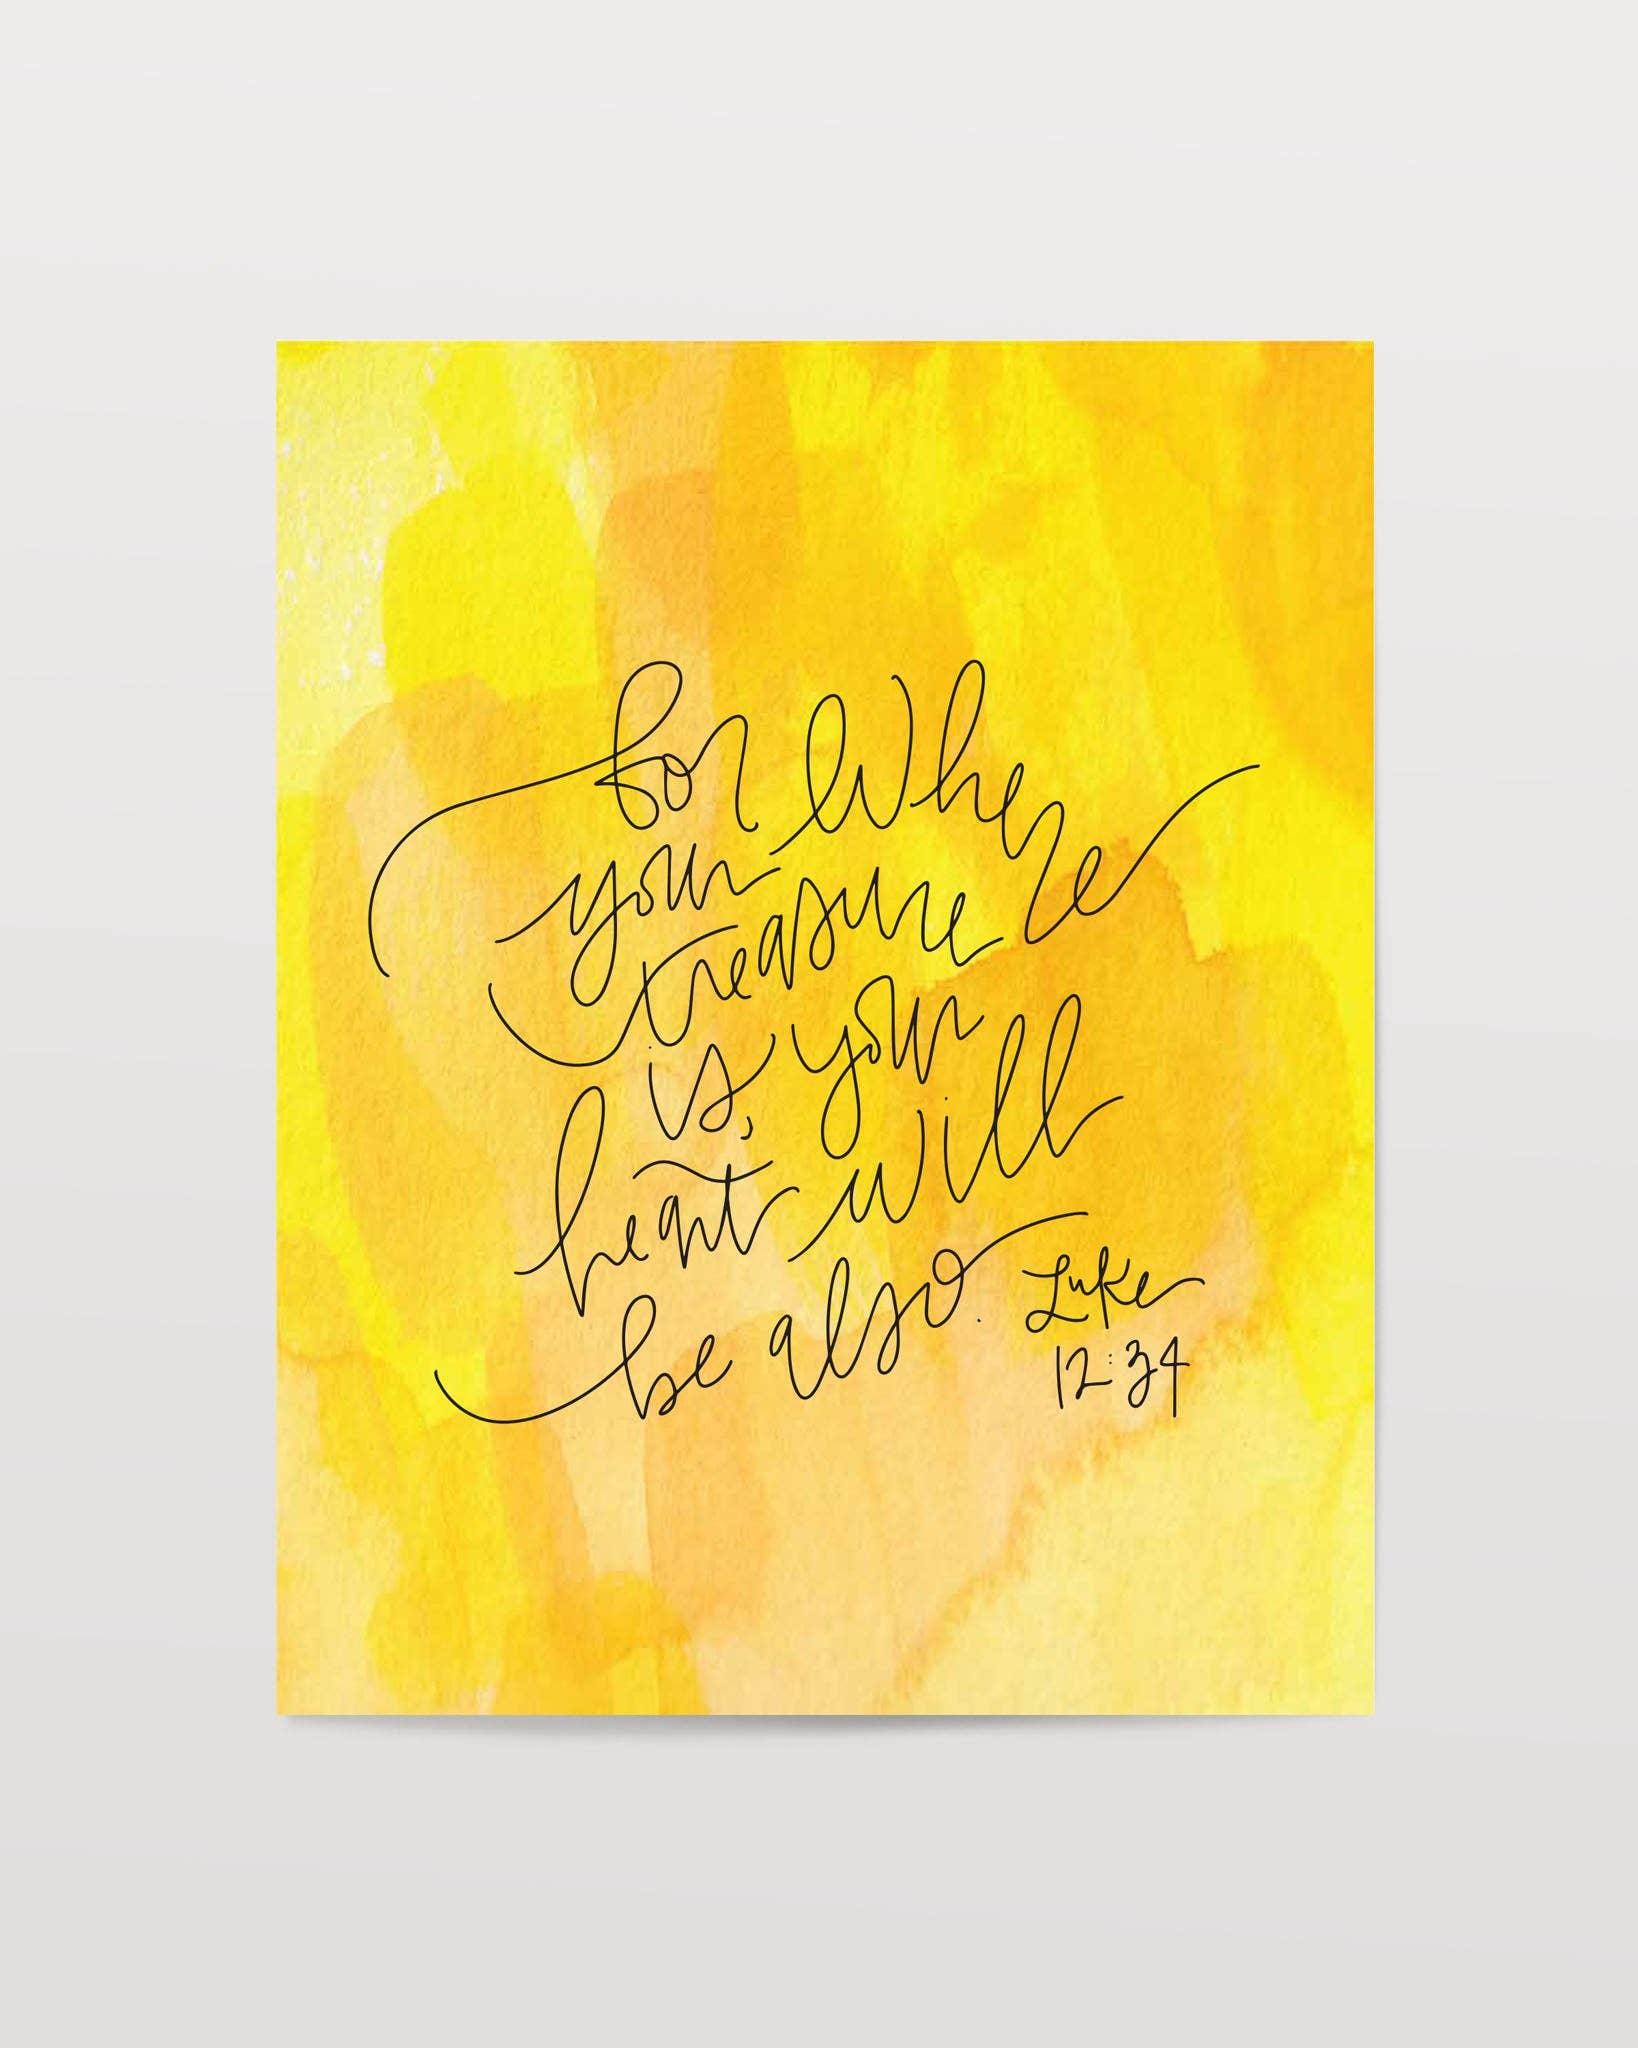 for where
your
treasure
is, your
heart will
be also.
Luke
12:34